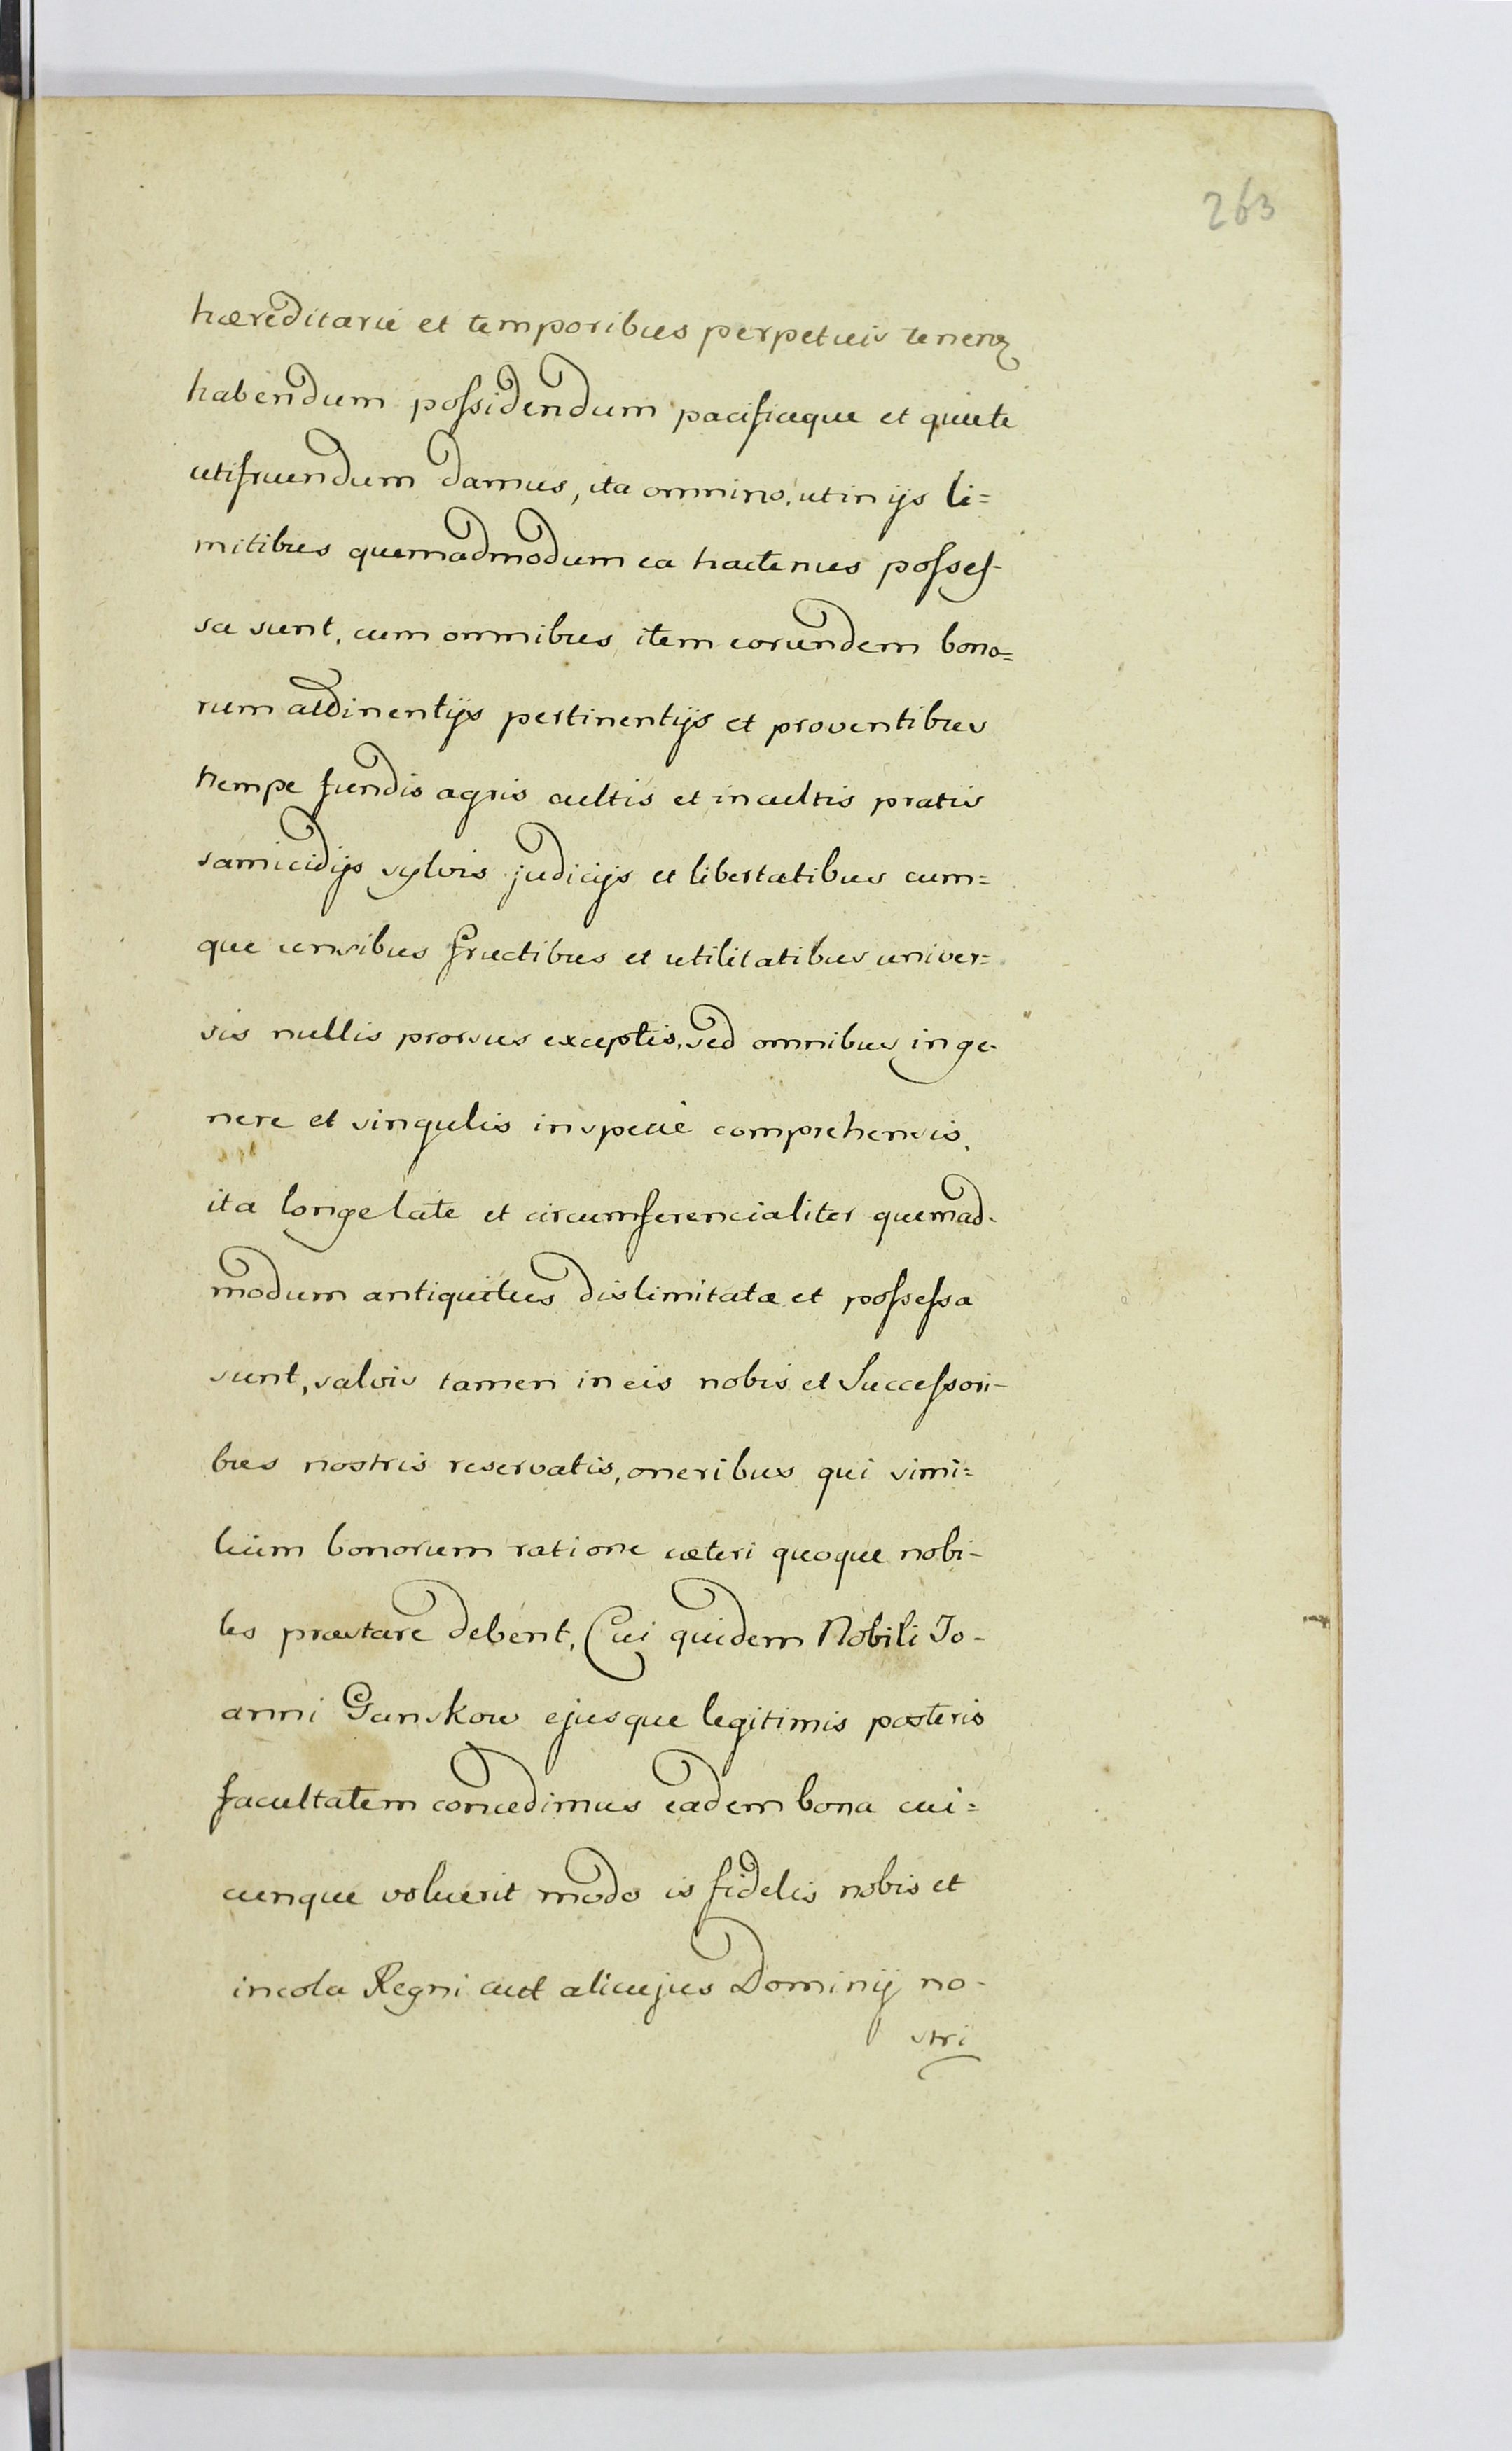 263
hæreditarie et temporibus perpetuis tenend
habendum possidendum pacificeque et quiete
utifruendum damus, ita omnino, ut in ijs li=
mitibus quemadmodum ea hactenus posses-
sa sunt, cum omnibus item eorundem bono=
rum attinentijs pertinentijs et proventibus
nempe fundis agris cultis et incultis pratis
samicidijs sylvis judicijs et libertatibus cum=
que censibus fructibus et utilitatibus univer=
sis nullis prorsus exceptis, sed omnibus in ge-
nere et singulis in specie comprehensis,
ita longe late et circumferencialiter quemad-
modum antiquitus dislimitata et possessa
sunt, salvis tamen in eis nobis et Successori-
bus nostris reservatis, oneribus qui simi=
lium bonorum ratione cæteri quoque nobi-
les præstare debent, Cui quidem Nobili Jo-
anni Ganskow ejusque legitimis posteris
facultatem concedimus eadem bona cui=
cunque voluerit modo is fidelis nobis et
incola Regni aut alicujus Dominij no-
stri